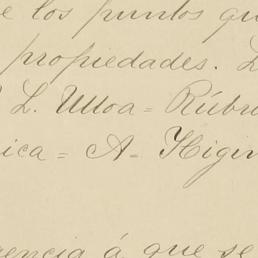 e los puntos qu
propiedades. L
L. Ulloa = Rúbri
ica = A. Higin
gencia á que se